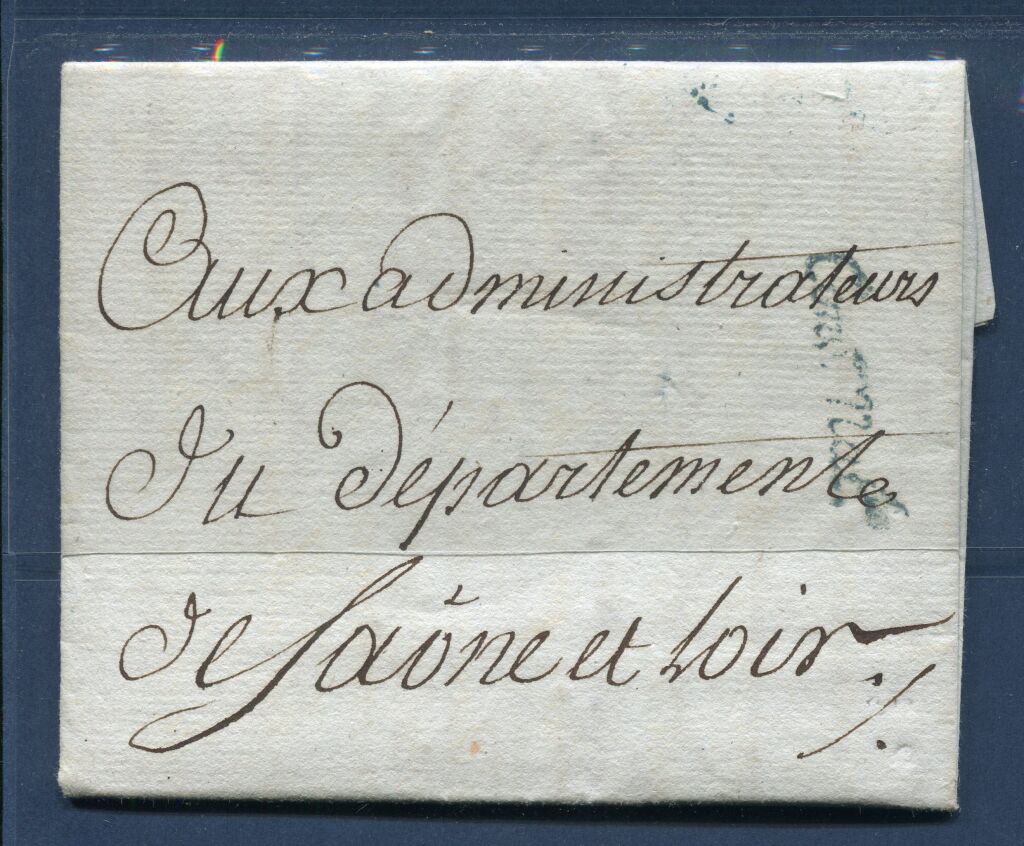 Aux administrateurs
du département
de Saône et Loir